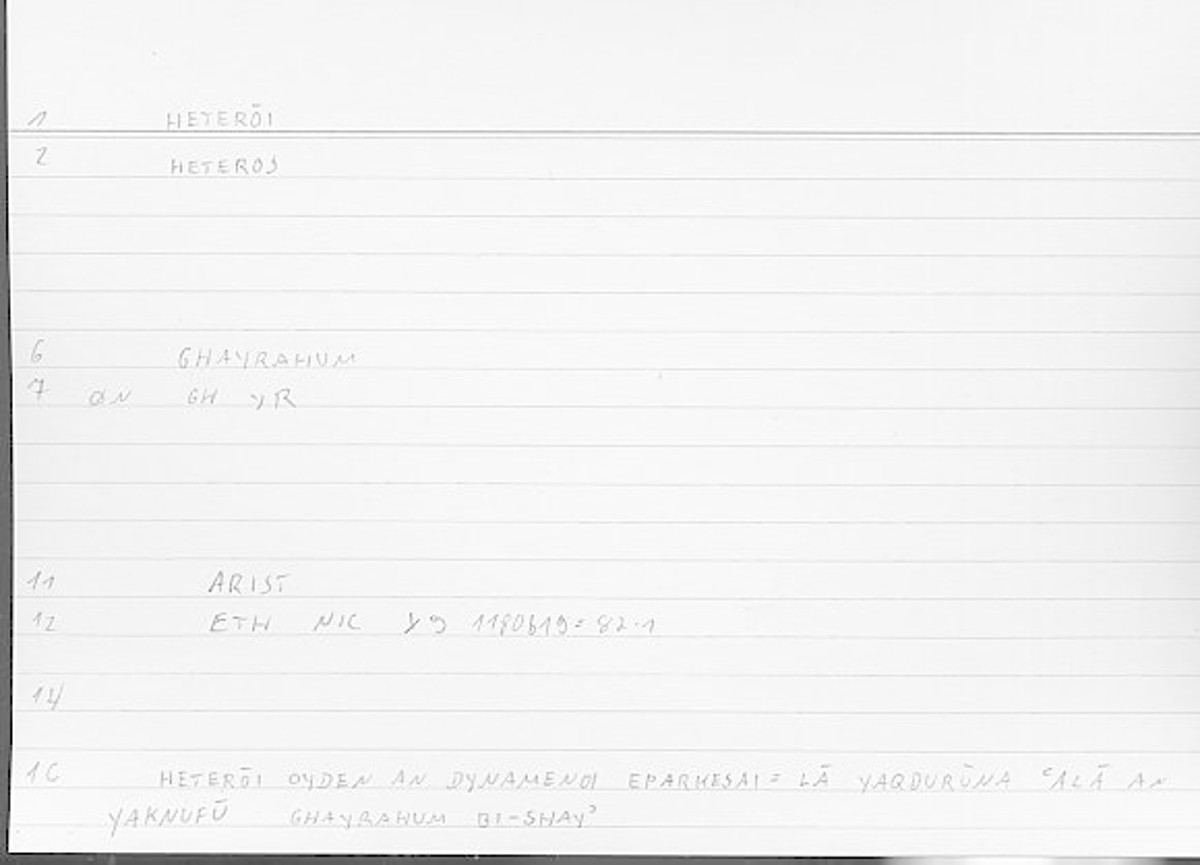 1 HETERŌI
2 HETEROS
6 GHAYRAHUM
7 ØN GH YR
11 ARIST
12 ETH NIC 1190b19=82.1
14
1C HETERŌI OYDEN AN DYNAMENOI EPARKESAI= LĀ YAQDURŪNA ʿALĀ AN
YAKNUFŪ GHAYRAHUM BI-SHAYʾ